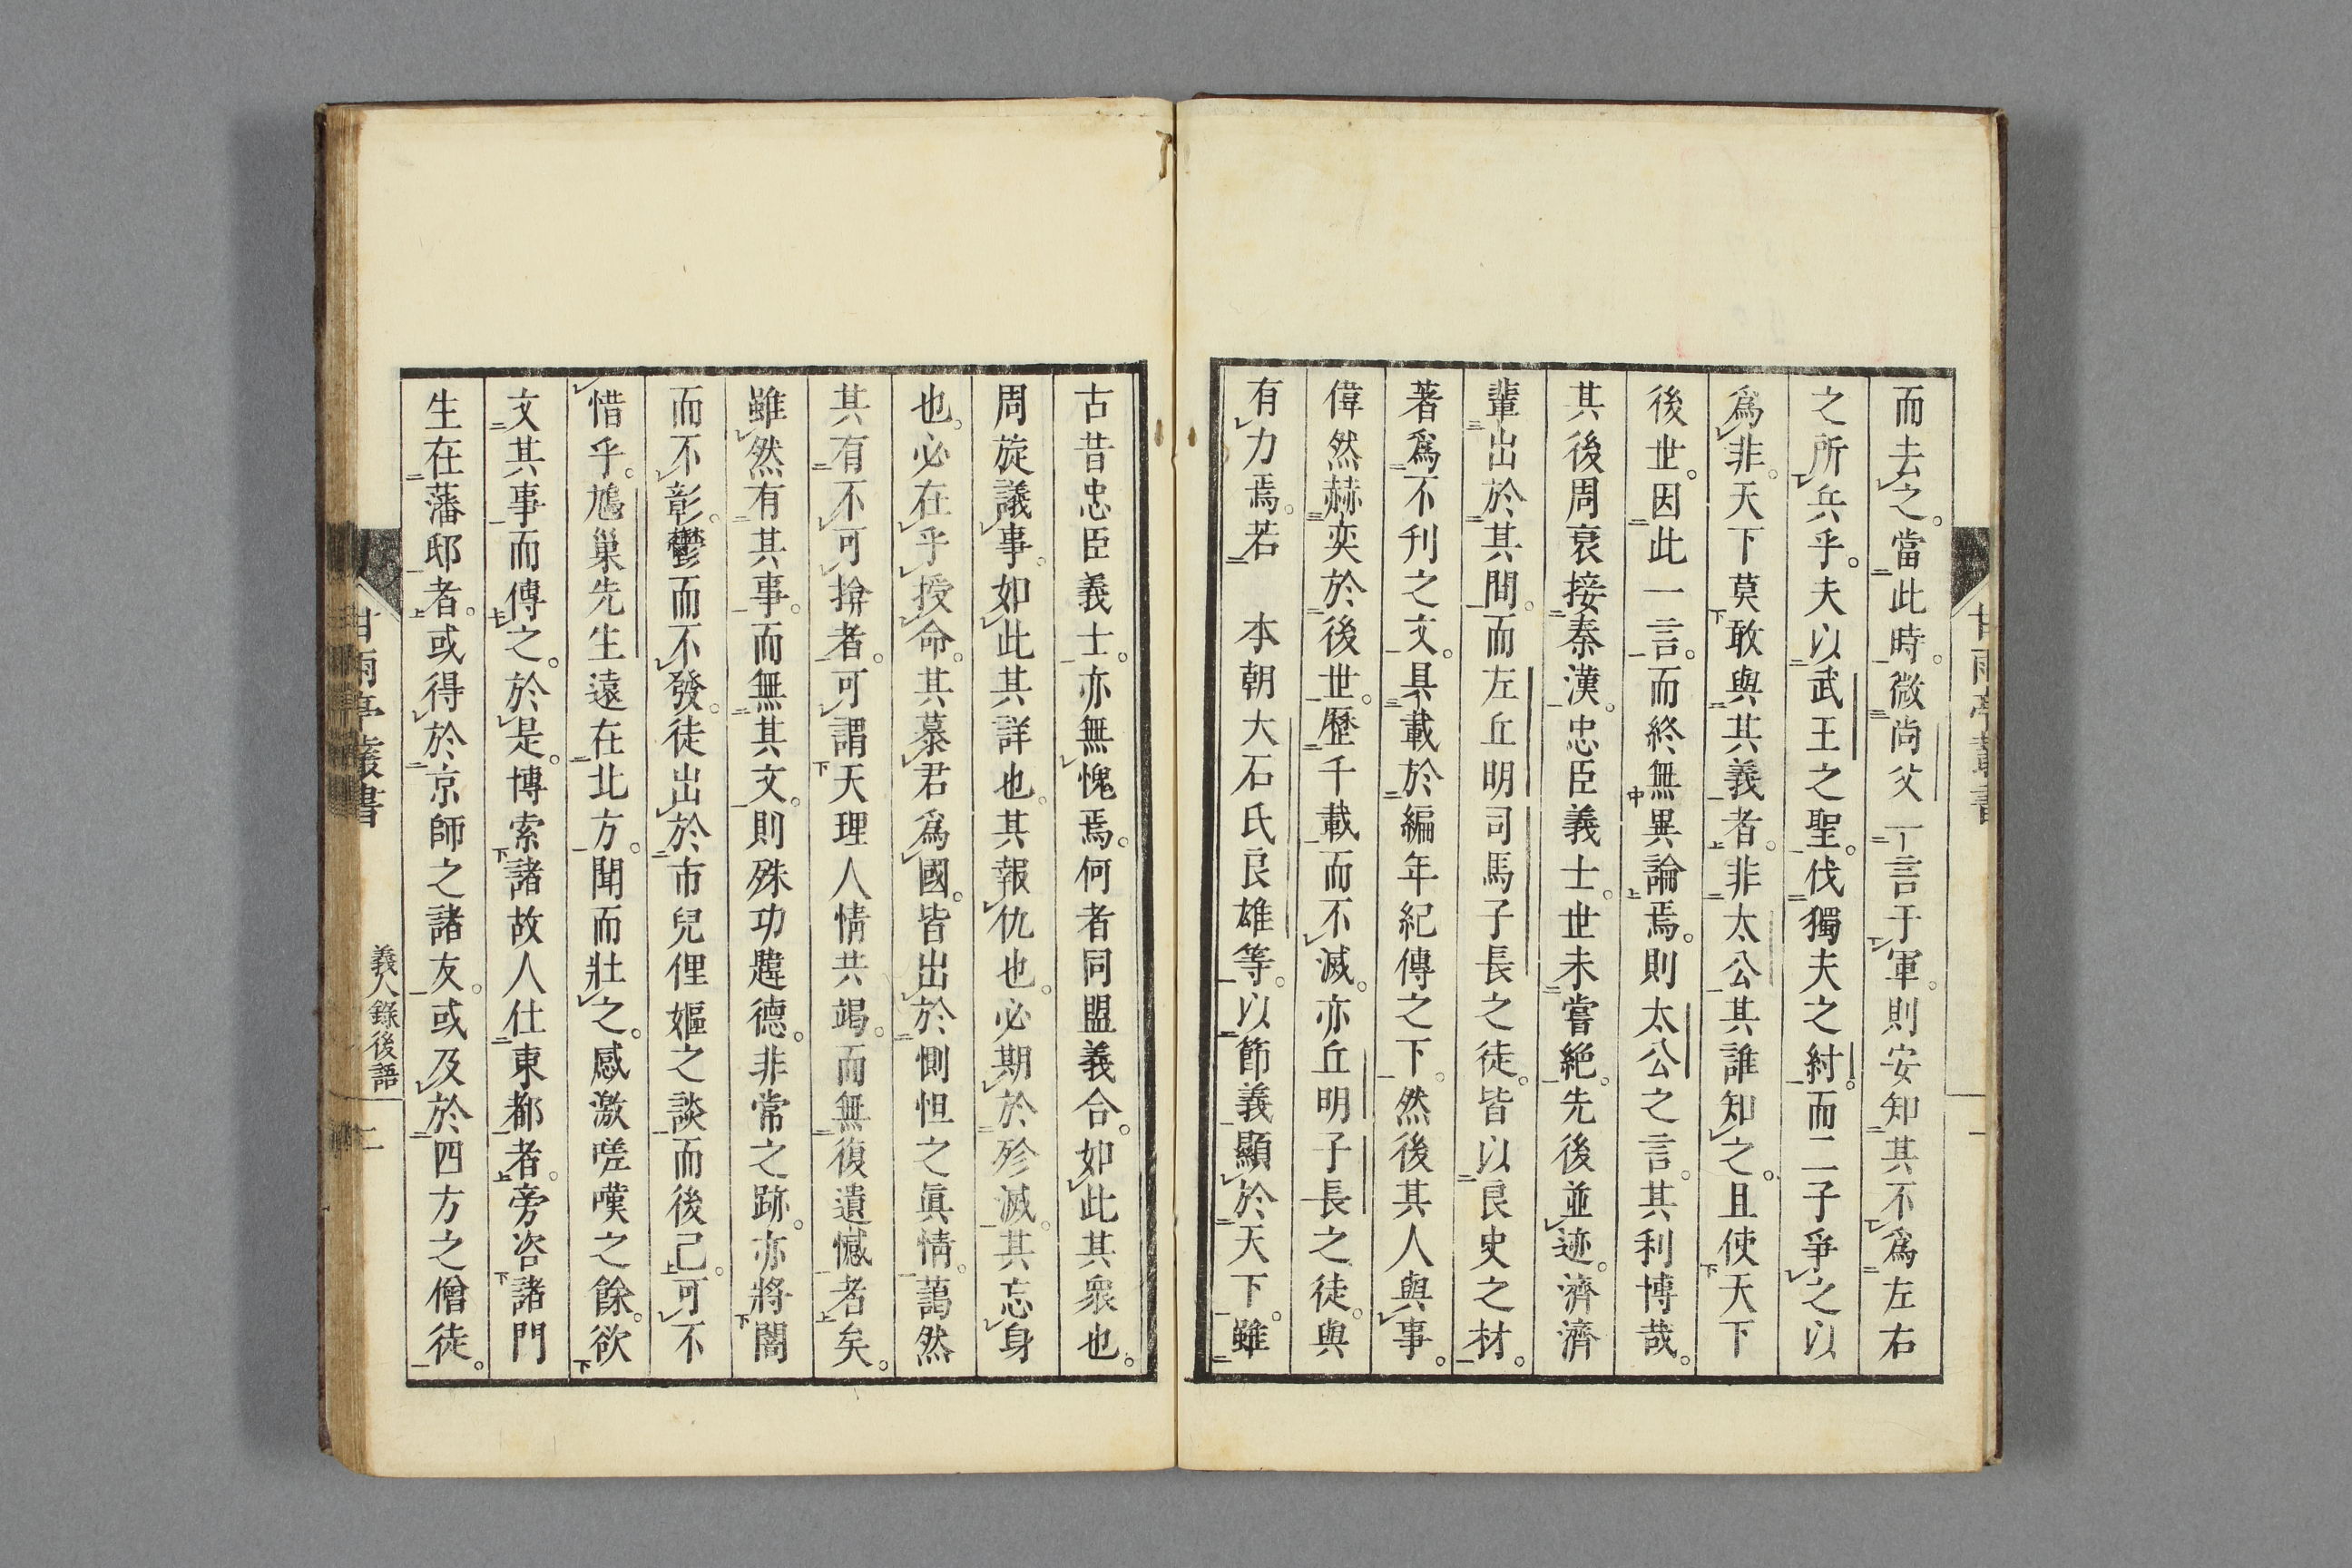 而去之。當此時。微尚父一言于軍。則安知其不爲左右
之所兵乎。夫以武王之聖。伐獨夫之紂。而二子爭之以
爲非。天下莫敢與其義者。非太公其誰知之。且使天下
後世。因此一言。而終無異論焉。則太公之言。其利博哉。
其後周衰接秦漢。忠臣義士。世未嘗絶。先後並迹。濟濟
輩出於其間。而左丘明司馬子長之徒。皆以良史之材。
著爲不刊之文。具載於編年紀傳之下。然後其人與事。
偉然赫奕於後世。歷千載而不滅。亦丘明子長之徒。與
有力焉。若　本朝大石氏良雄等。以節義顯於天下。雖
古昔忠臣義士。亦無愧焉。何者同盟義合。如此其衆也。
周旋議事。如此其詳也。其報仇也。必期於殄滅。其忘身
也。必在乎授命。其慕君爲國。皆出於惻怛之眞情。藹然
其有不可揜者。可謂天理人情共竭。而無復遺憾者矣。
雖然有其事。而無其文。則殊功韙德。非常之跡。亦將闇
而不彰。鬱而不發。徒出於市兒俚嫗之談而後已。可不
惜乎。鳩巢先生遠在北方。聞而壯之。感激嗟嘆之餘。欲
文其事而傳之。於是。博索諸故人仕東都者。旁咨諸門
生在藩邸者。或得於京師之諸友。或及於四方之僧徒。
甘雨亭叢書
義人錄後語
二
甘雨亭叢書